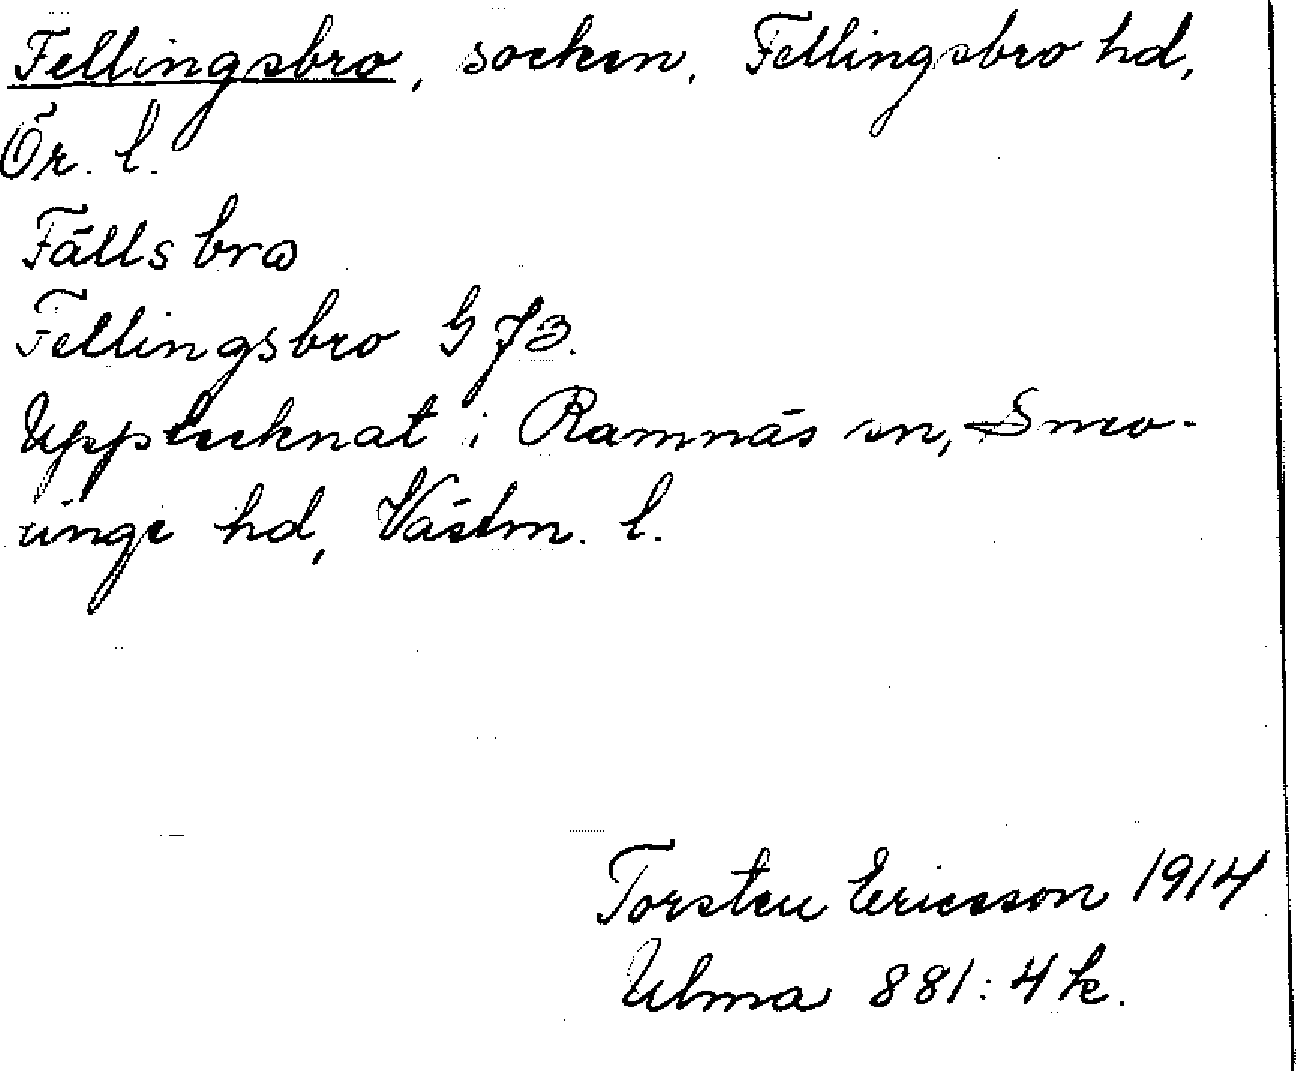 Fellingsbro, socken, Fellingsbro hd,
Ör. l.
Fällsbro
Fellingsbro G 73.
Upptecknat i Ramnäs sn, Snev-
ringe hd, Västm. l.
Torsten Ericsson 1914
Ulma 881:4 k.